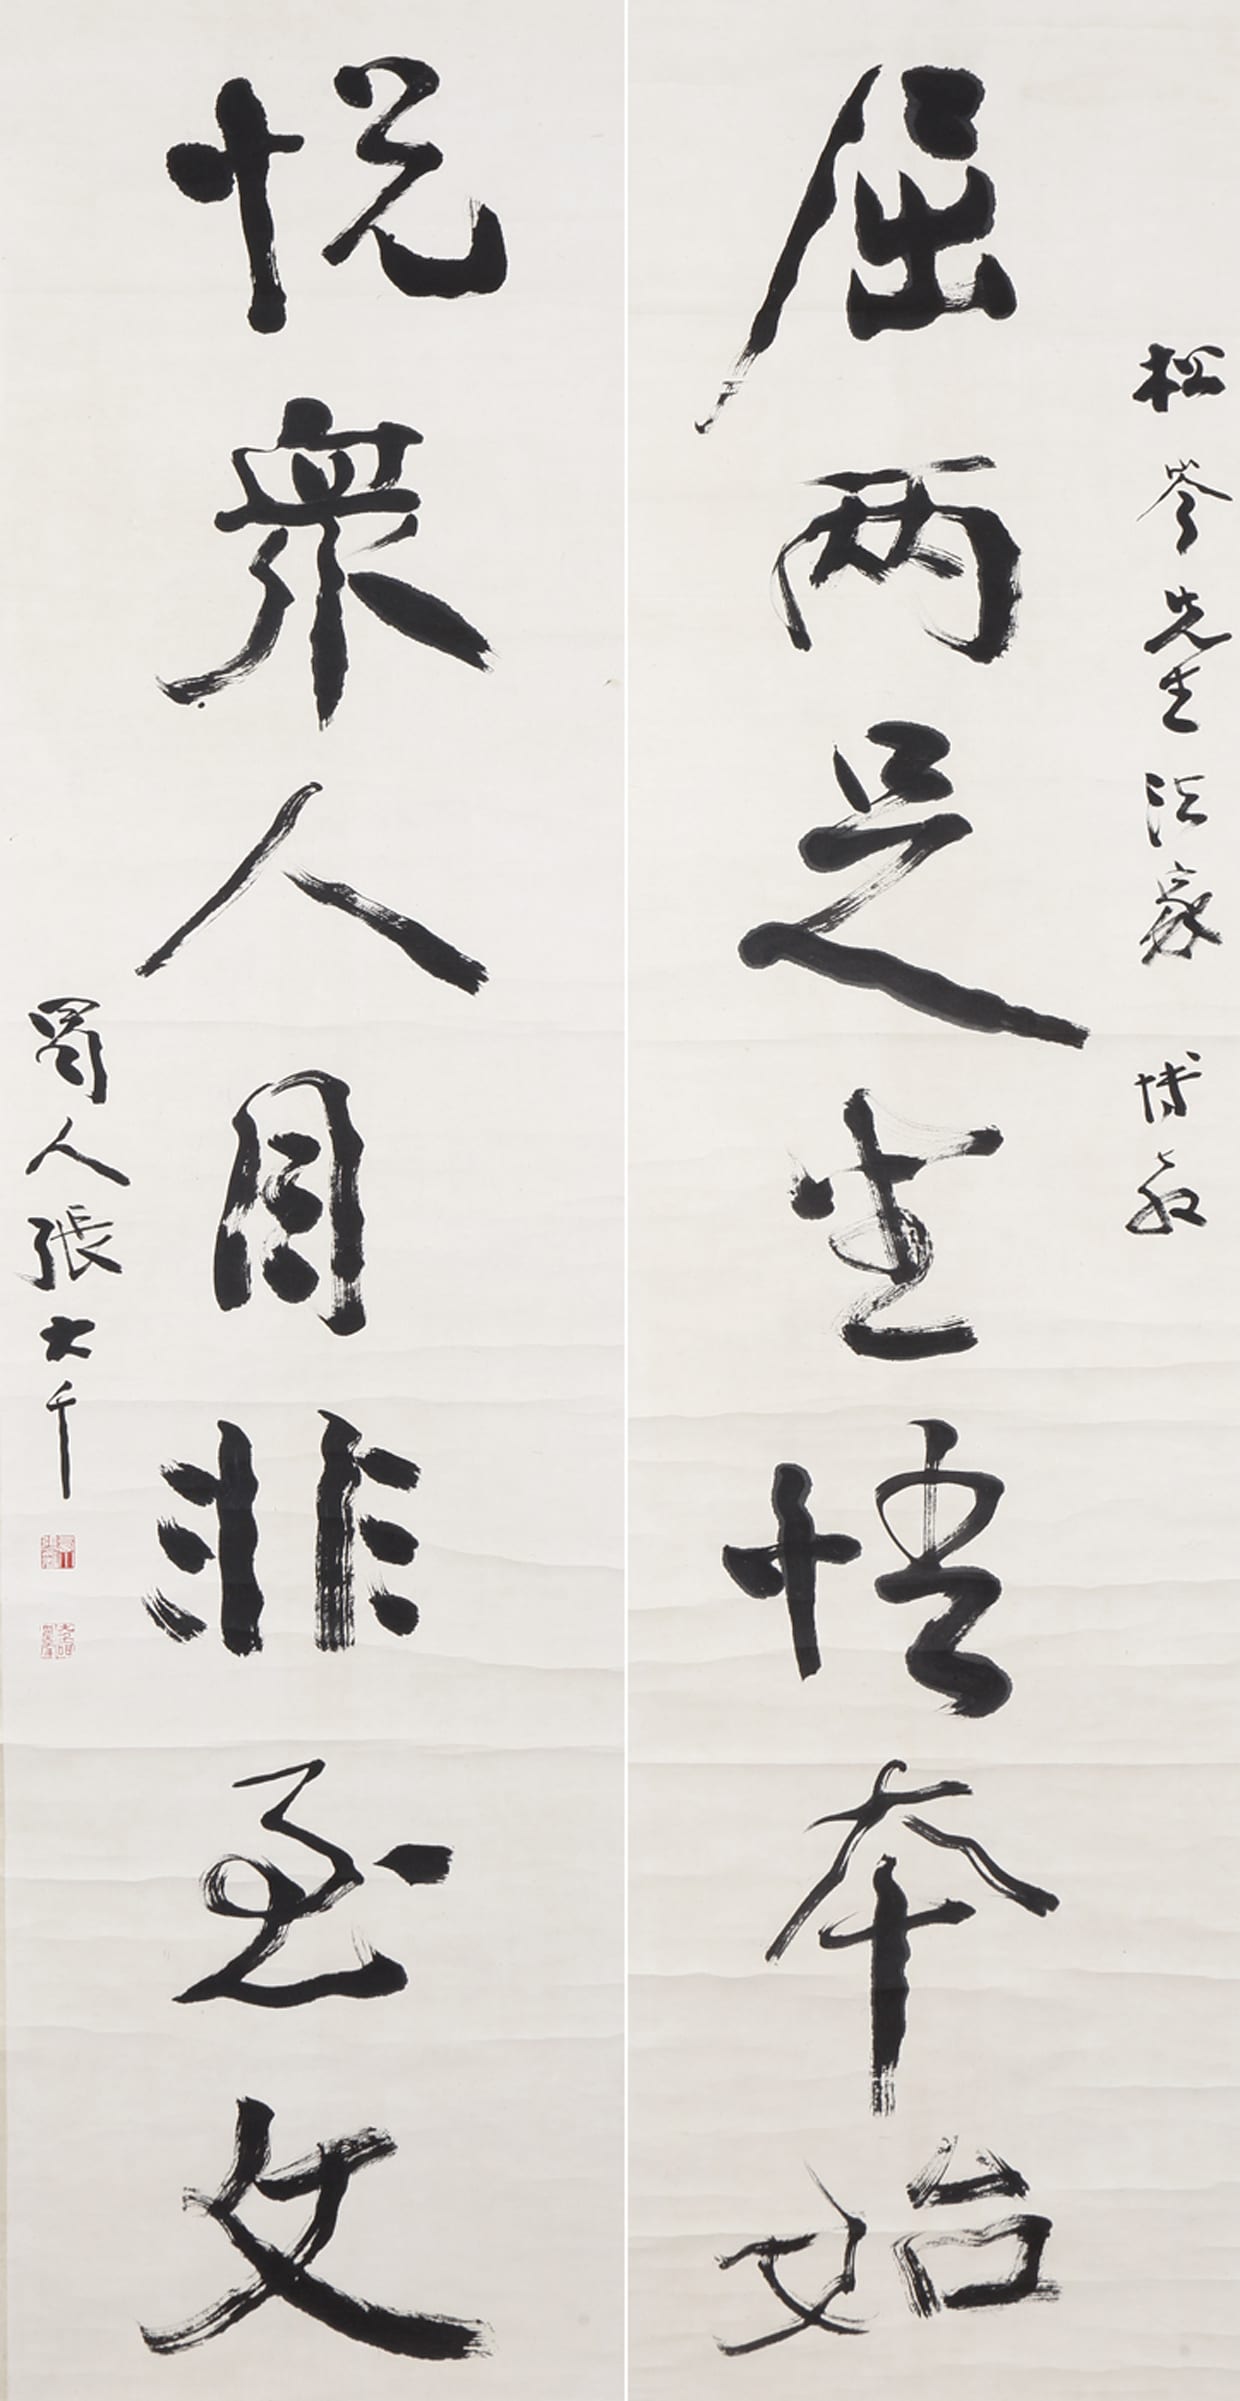 松岑先生法家 博教
屈兩足生悟本始
悦眾人目非至文
蜀人張大千